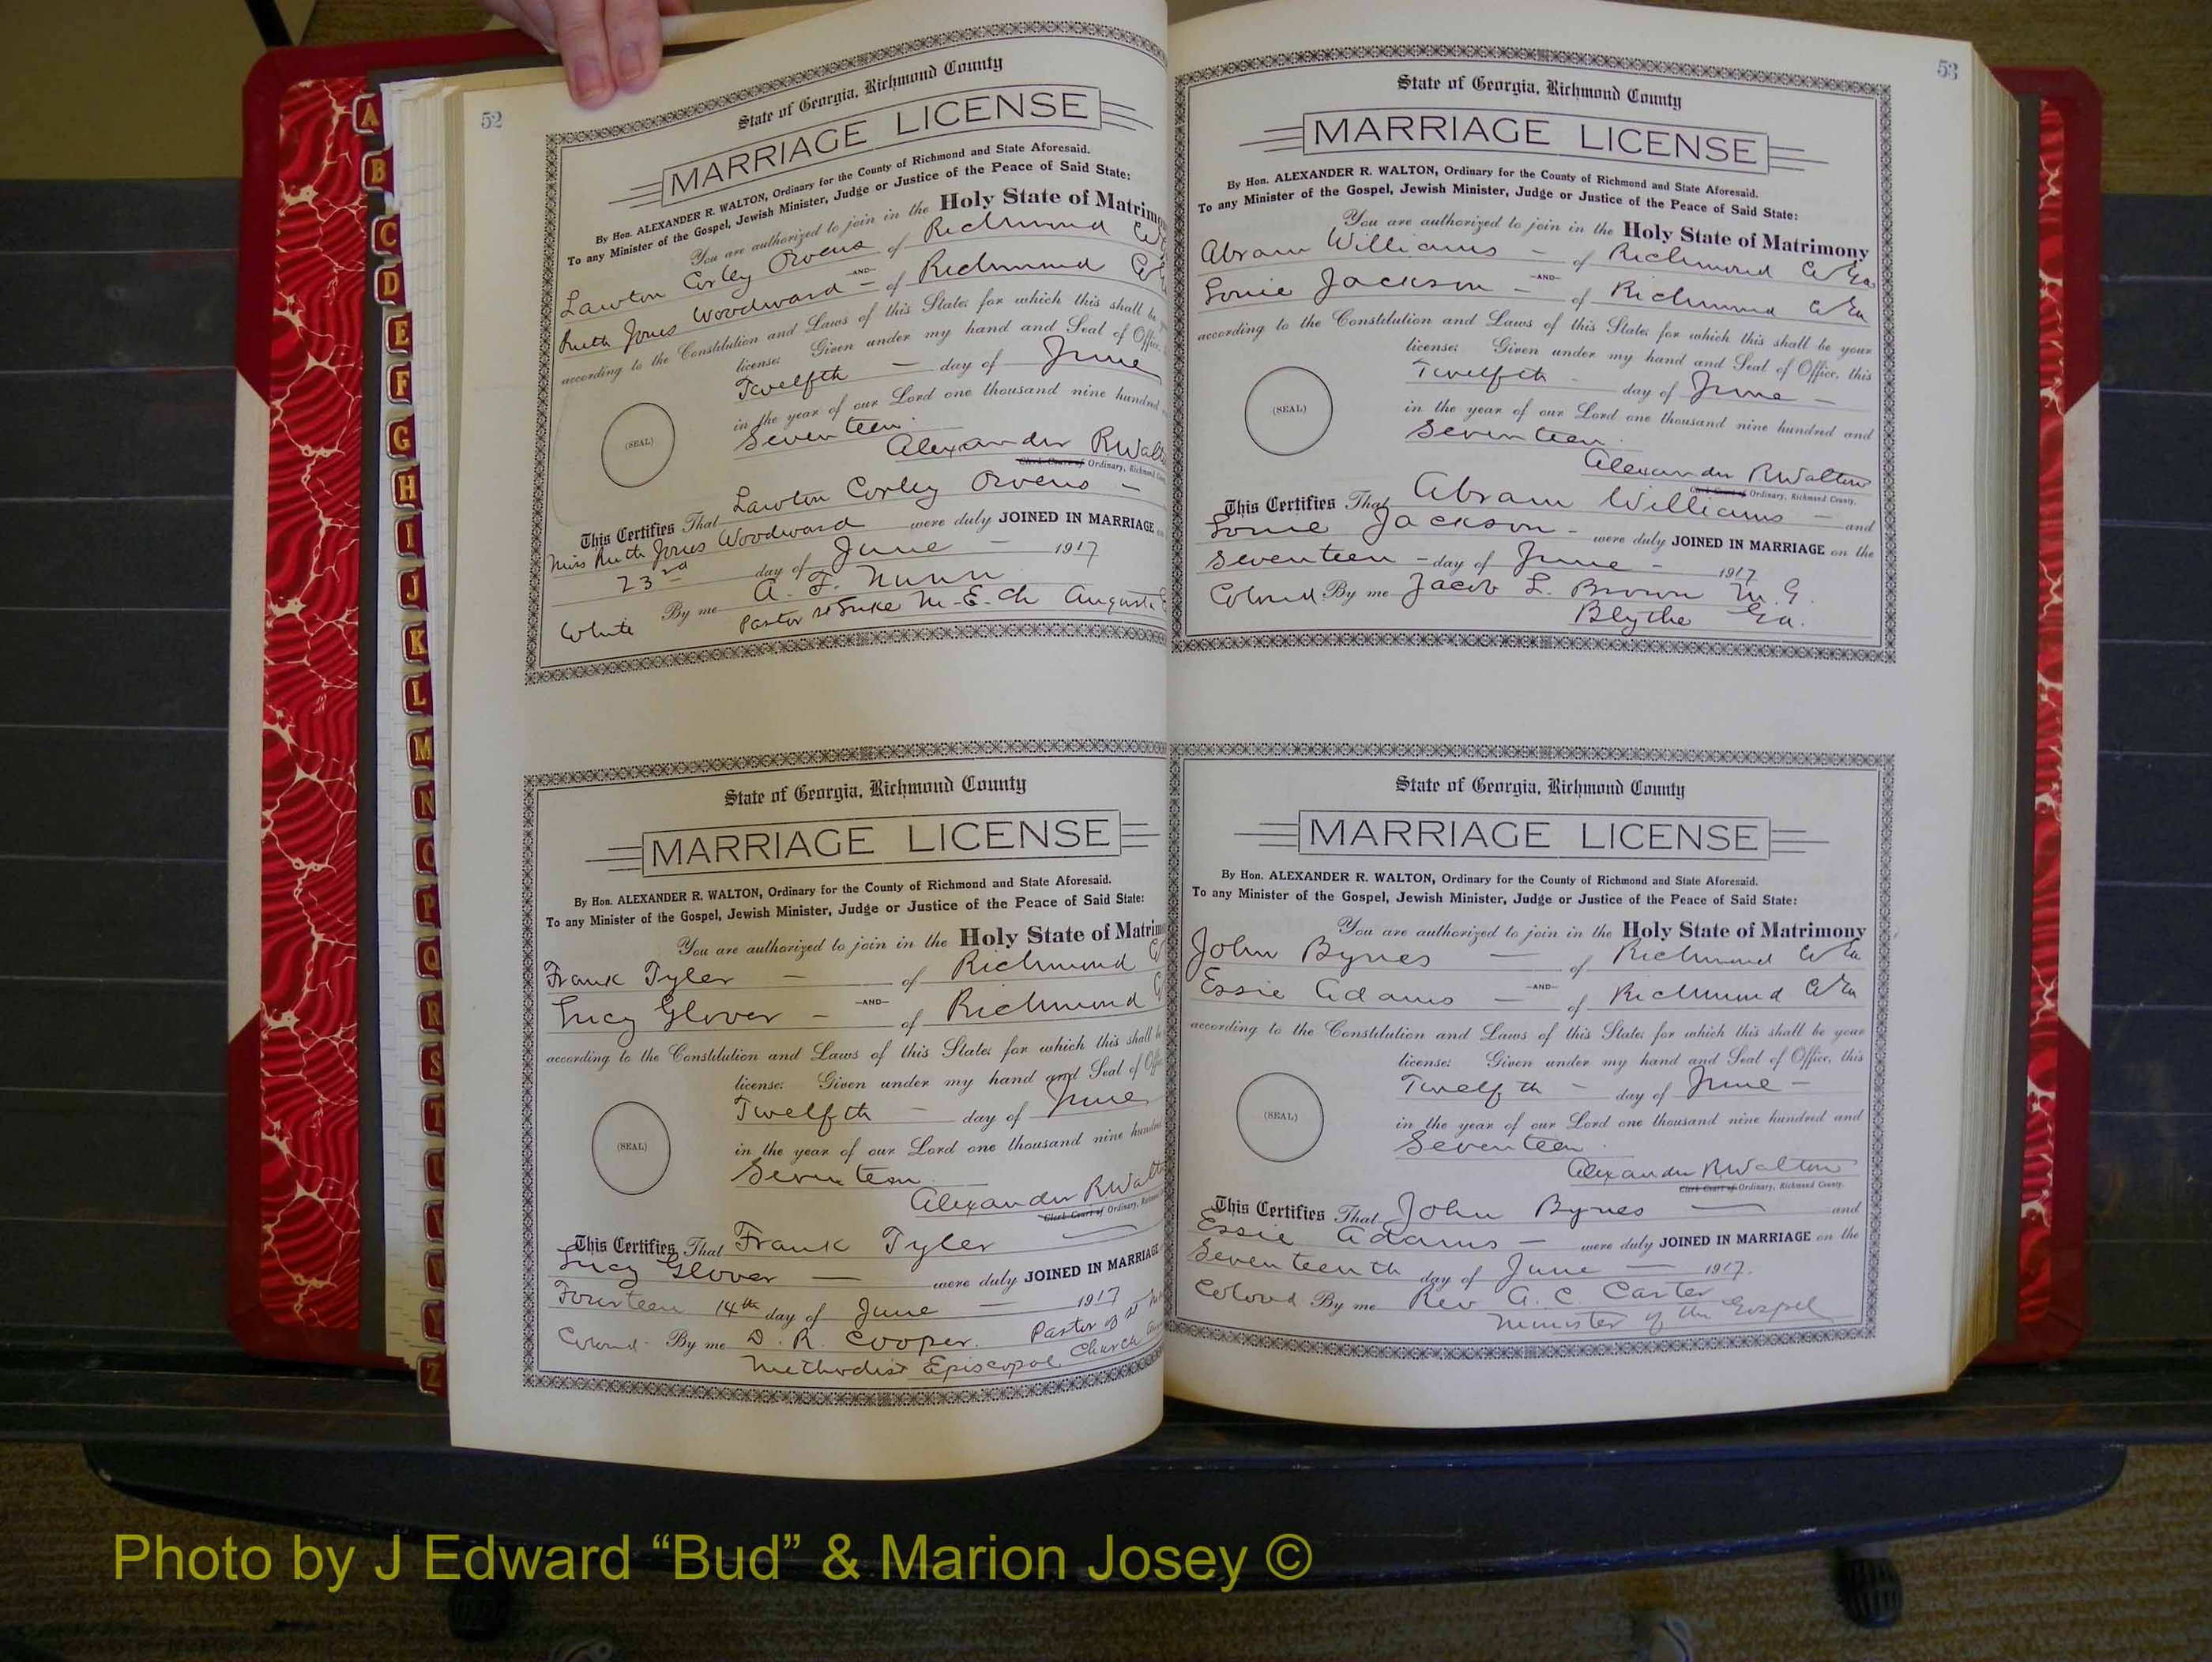 52
State of Georgia, Richmond County
MARRIAGE LICENSE
By Hon. ALEXANDER R. WALTON, Ordinary for the County of Richmond and State Aforesaid.
To any Minister of the Gospel, Jewish Minister, Judge or Justice of the Peace of Said State:
You are authorized to join in the Holy State of Matrimo
Lawton Corley Owens of Richmond
—AND—
Ruth Jones Woodward — of Richmond
according to the Constitution and Laws of this State; for which this shall be
license: Given under my hand and Seal of Office,
Twelfth — day of June
in the year of our Lord one thousand nine hundred
(SEAL)
Seventeen
Alexander R Walt
Clerk Court of Ordinary, Richmond County
Lawton Corley Owens —
This Certifies That
Miss Ruth Jones Woodward were duly JOINED IN MARRIAGE
23rd day of June — 1917
White By me A. F. Nunn
Pastor St Luke M. E. Ch Augusta
State of Georgia, Richmond County
MARRIAGE LICENSE
By Hon. ALEXANDER R. WALTON, Ordinary for the County of Richmond and State Aforesaid.
To any Minister of the Gospel, Jewish Minister, Judge or Justice of the Peace of Said State:
You are authorized to join in the Holy State of Matrim
Frank Tyler — of Richmond
—AND—
Lucy Glover — of Richmond
according to the Constitution and Laws of this State; for which this shall be
license: Given under my hand and Seal of Offi
Twelfth — day of June
(SEAL)
in the year of our Lord one thousand nine hundred
Seventeen
Alexander R. Walt
Clerk Court of Ordinary, Richmond
This Certifies That Frank Tyler
Lucy Glover — were duly JOINED IN MARRIAGE
Fourteen 14th day of June — 1917
Colored By me D. R. Cooper. Pastor of St
Methodist Episcopal Church
53
State of Georgia, Richmond County
MARRIAGE LICENSE
By Hon. ALEXANDER R. WALTON, Ordinary for the County of Richmond and State Aforesaid.
To any Minister of the Gospel, Jewish Minister, Judge or Justice of the Peace of Said State:
You are authorized to join in the Holy State of Matrimony
Abram Williams — of Richmond Co Ga
—AND—
Louie Jackson — of Richmond Co Ga
according to the Constitution and Laws of this State; for which this shall be your
license: Given under my hand and Seal of Office, this
Twelfth — day of June —
(SEAL)
in the year of our Lord one thousand nine hundred and
Seventeen
Alexander R Walton
Clerk Court of Ordinary, Richmond County.
This Certifies That Abram Williams — and
Louie Jackson — were duly JOINED IN MARRIAGE on the
Seventeen — day of June — 1917
Colored By me Jacob L. Brown M. G.
Blythe Ga.
State of Georgia, Richmond County
MARRIAGE LICENSE
By Hon. ALEXANDER R. WALTON, Ordinary for the County of Richmond and State Aforesaid.
To any Minister of the Gospel, Jewish Minister, Judge or Justice of the Peace of Said State:
You are authorized to join in the Holy State of Matrimony
John Bynes — of Richmond Co Ga
—AND—
Essie Adams — of Richmond Co Ga
according to the Constitution and Laws of this State; for which this shall be your
license: Given under my hand and Seal of Office, this
Twelfth — day of June —
(SEAL)
in the year of our Lord one thousand nine hundred and
Seventeen
Alexander R Walton
Clerk Court of Ordinary, Richmond County.
This Certifies That John Bynes — and
Essie Adams — were duly JOINED IN MARRIAGE on the
Seventeenth day of June — 1917.
Colored By me Rev A. C. Carter
Minister of the Gospel
A
B
C
D
E
F
G
H
I
J
K
L
M
N
O
P
Q
R
S
T
U
V
W
Z
Photo by J Edward “Bud” & Marion Josey ©